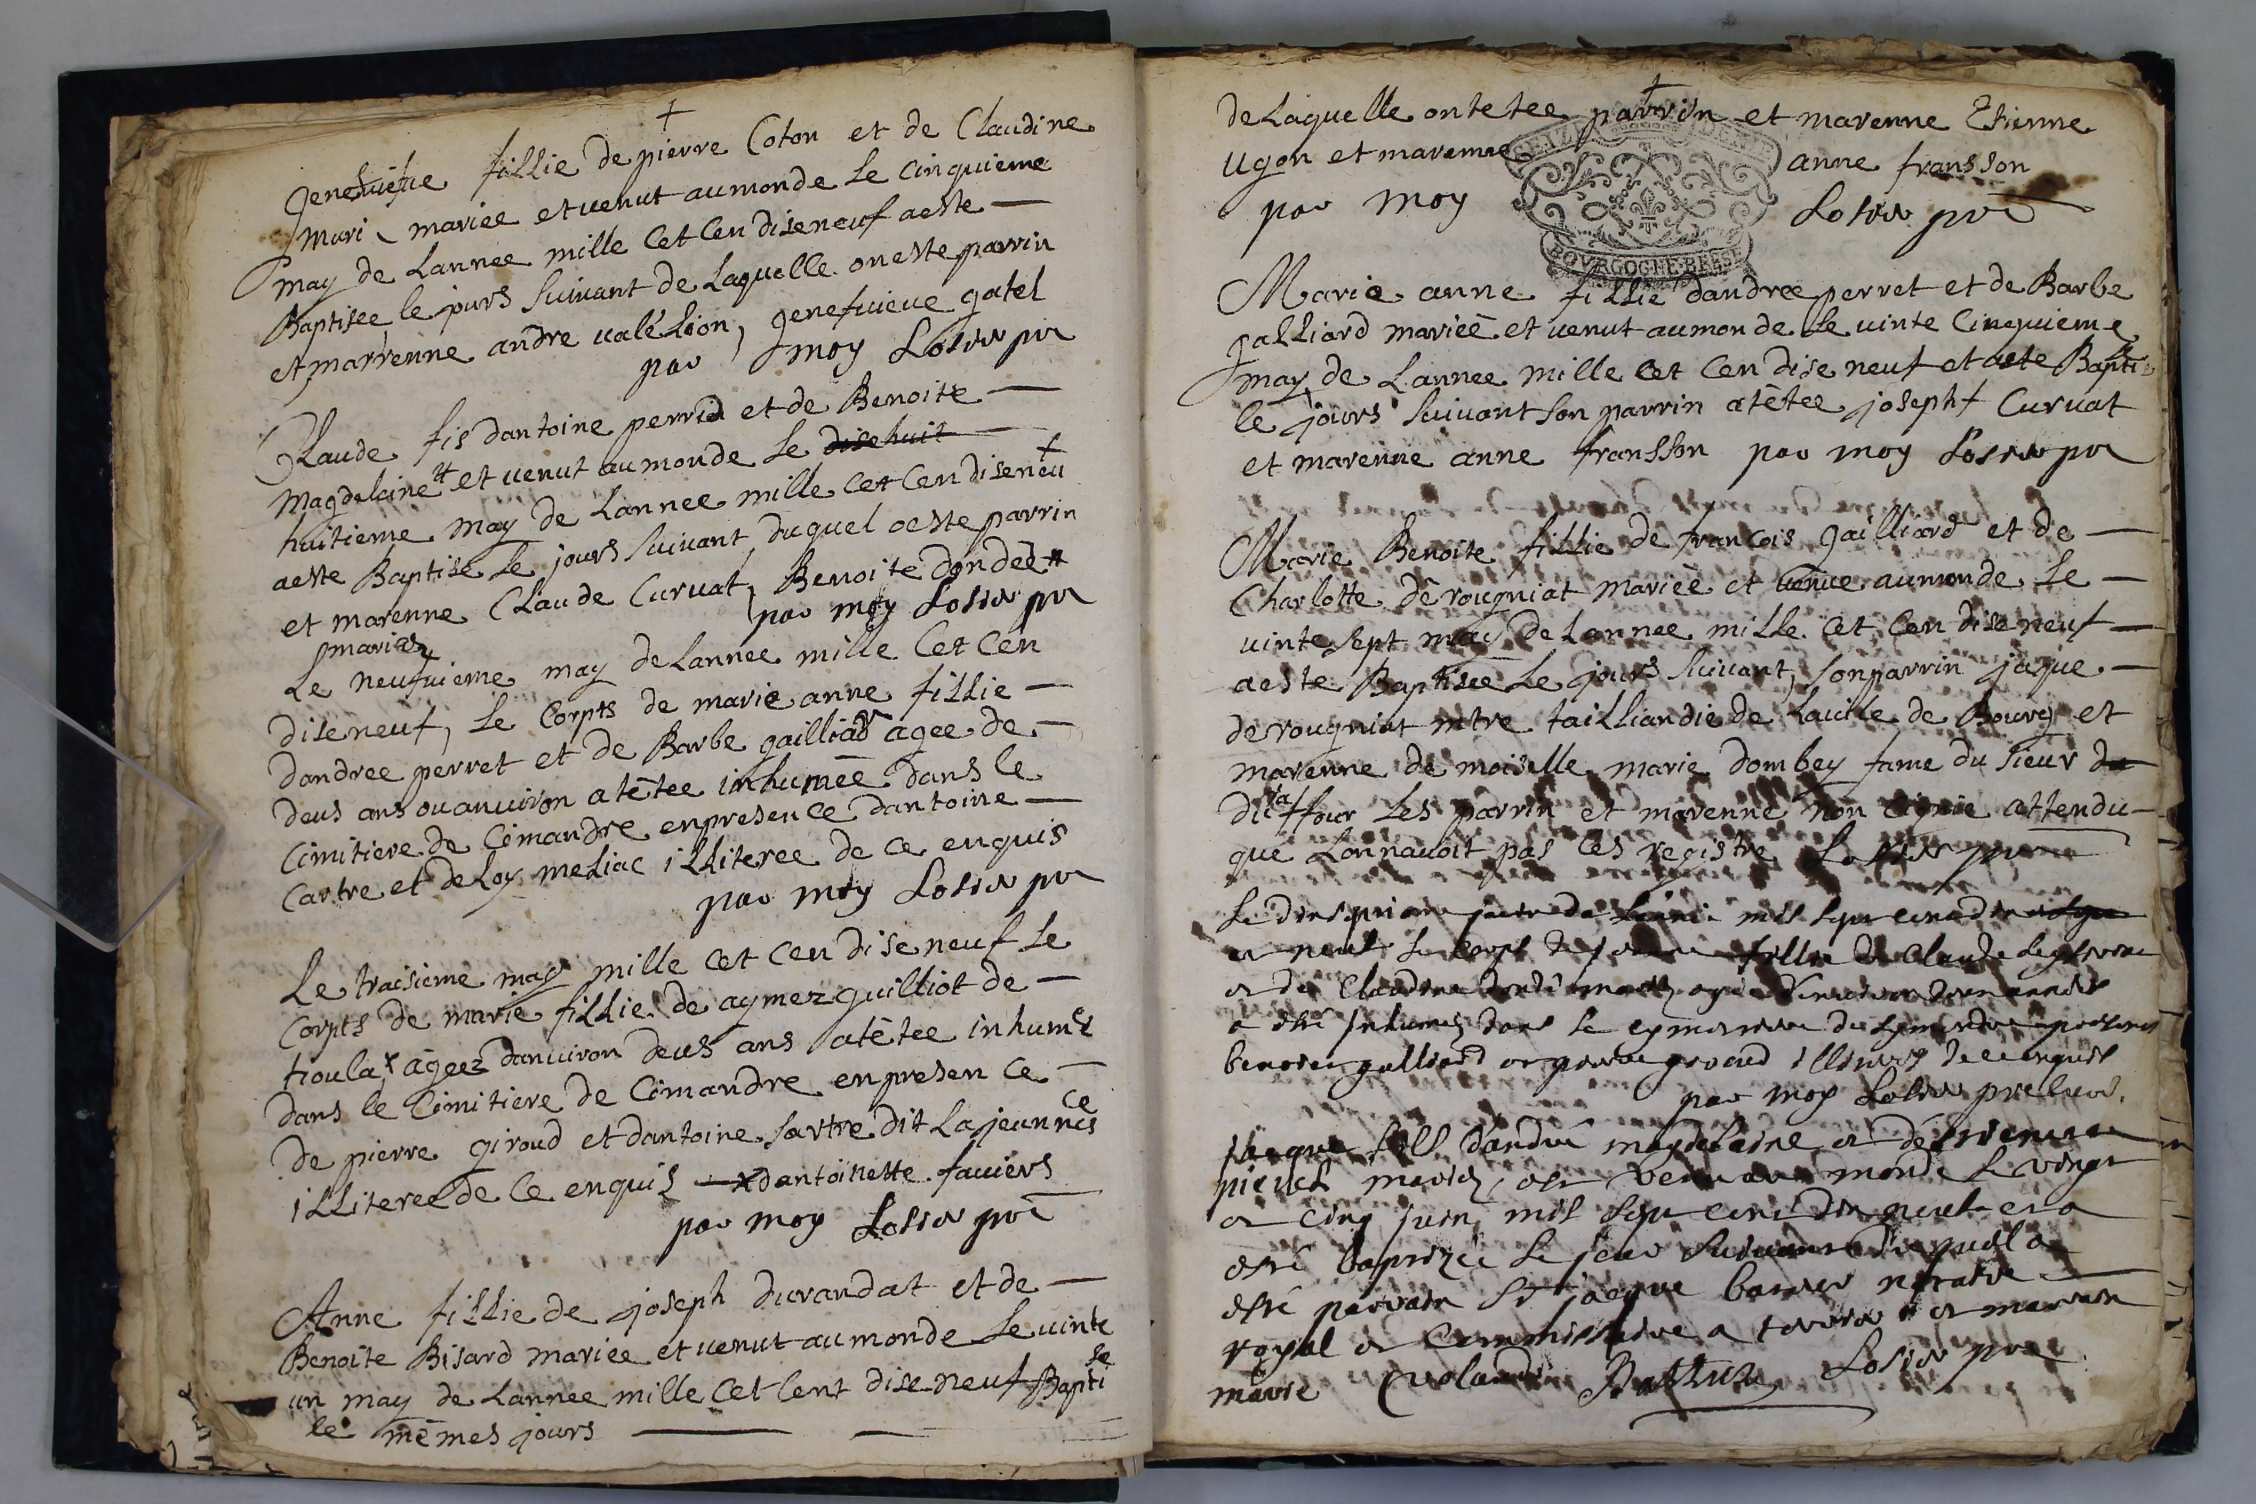 +
genefuiefue fillie de pierre Coton et de Claudine
muri mariee et venut aumonde le cinquieme
may de Lannee mille Cet Cen diseneuf aeste
Baptisee le jours suivant de Laquelle on este parrin
et marrenne andre valé Lion, genefuieue gatel
par moy Losier pr
Claude fis dantoine perrid et de Benoite
magdelaine et venut aumonde le disehuit
huitieme may de Lannee mille cet Cen diseneu
aeste Baptise le jours suivant duquel aeste parrin
et marenne Claude Curuat, Benoite dondee
mariez
par moy Losier pr
Le neufuieme may de Lannee mille Cet Cen
diseneuf, le Corpts de marie anne fillie
dandree perret et de Barbe gailliad agee de
deus ans ouanuiron atêtee inhumée dans le
Cimitiere de Cimandre enpresence dantoine
Cartre et deloy meliac illiteree de ce enquis
par moy Losier pr
Le traisieme may mille cet cen diseneuf le
Corpts de marie fillie de aymez guilliot de
tioula x âgeez danuiron deus ans atêtee inhumez
dans le Cimitiere de Cimandre enpresen ce
de pierre giroud et dantoine sartre dit Lajeunnes
ce
illiteree de ce enquis x dantoinette fauiers
par moy Losier pr
Anne fillie de joseph durandat et de
Benoite Bisard mariee et venut aumonde le vinte
un may de Lannee mille cet Cent diseneuf Bapti
se
le mêmes jours
+
de Laquelle ontetee parrin et marenne Etienne
ugon et marenne anne fransson
par moy Losier pr
BOVRGOGNE BRESSE
Marie anne fillie dandree perret et de Barbe
galliard mariée et venut aumonde le vinte Cinquieme
may de Lannee mille cet Cen dise neuf et aste Bapti
le jours suivant son parrin atêtee josepht Curuat
et marenne anne fransson par moy Losier pr
Marie Benoite fillie de francois gailliard et de
Charlotte dêrougniat mariée et venue aumonde le
vinte sept may de Lannee mille cet Cen dise neuf
aeste Baptisee le jours suivant, sonparrin jaque
derougniat mtre tailliandie de Lauile de Bourg et
marenne de moiselle marie dombey fame du sieur
du la ffour Les parrin et marenne non signie attendu
que Lonnauoit pas Ces registre Losier pr
mil sept cent dix
et neuf le corps de fillie de Claude
et de Claudine
a esté inhumez dans le
benoit galliard et pierre giroud illiteres de ce enquis
par moy Losier prebtre.
jacque fils d'andré magdelaine et de
mariez, est venu au monde le vingt
et cinq juin mil sept cent dix neuf et a
esté baptizée le jour suivant duquel a
esté parrain Sr jacque notaire
royal et Commissaire a et marrain
marie Losier pr